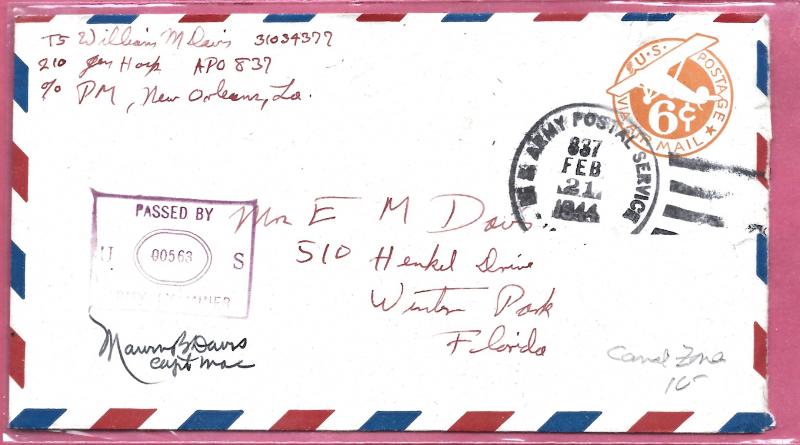 T5 William M Davis 31034377
210 Gen Hosp APO 837
c/o PM, New Orleans, La.
U.S. POSTAGE
6¢
VIA AIR MAIL
U.S. ARMY POSTAL SERVICE
837
FEB
21
1944
PASSED BY
U 00563 S
ARMY EXAMINER
Mrs E M Davis
510 Henkel Drive
Winter Park
Florida
B. Davis
Capt MAC
Canal Zone